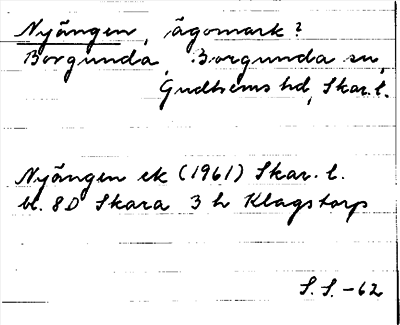 Nyängen, ägomark?
Borgunda, Borgunda sn,
Gudhems hd, Skar. l.
Nyängen ek (1961) Skar. l.
bl. 8D Skara 3 h Klagstorp
S. S. -62